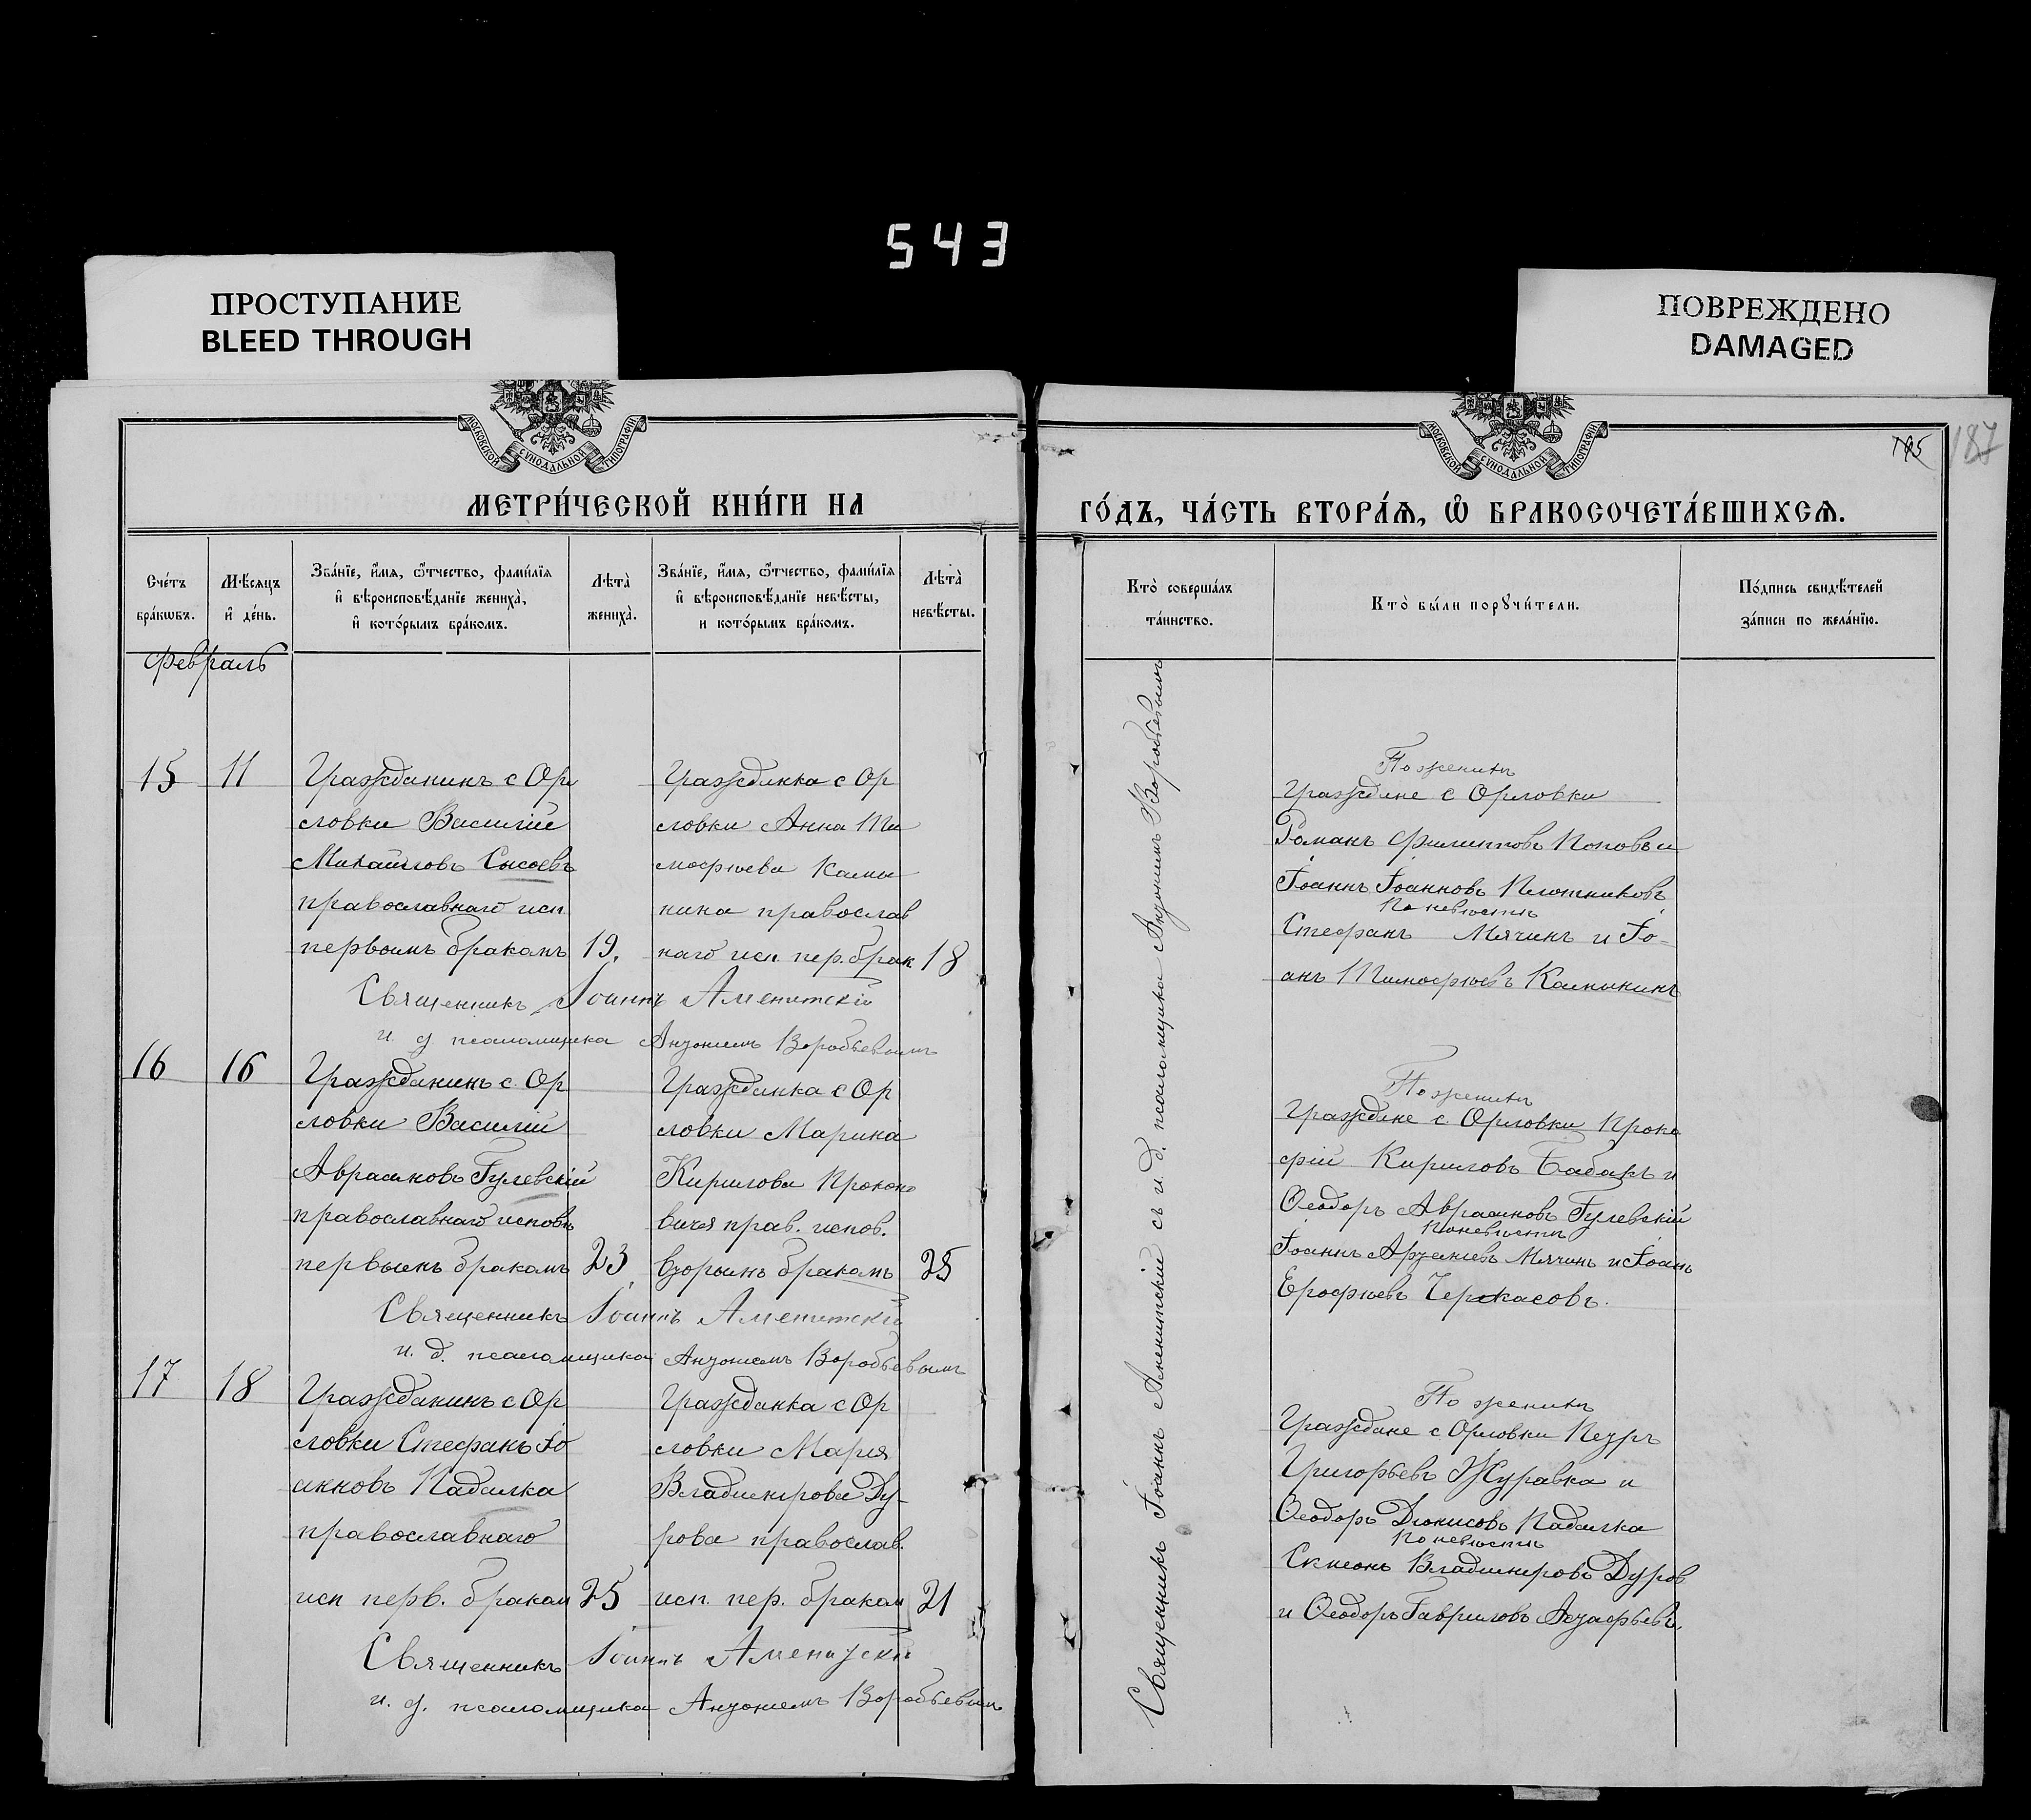 543
ПРОСТУПАНИЕ
BLEED THROUGH
ПОВРЕЖДЕНО
DAMAGED
МОСКОВСКОЙ СѴНОДАЛЬНОЙ ТИПОГРАФІИ
МЕТРИ́ЧЕСКОЙ КНИ́ГИ НА
Сче́тъ бра́кѡвъ.
Мѣ́сяцъ и҆ де́нь.
Зва́нїе, и҆́мя, ѻ҆́тчество, фами́лїя
и҆ вѣроисповѣ́данїе жениха̀,
и҆ кото́рымъ бра́комъ.
Лѣта̀ жениха̀.
Зва́нїе, и҆́мя, ѻ҆́тчество, фами́лїя
и҆ вѣроисповѣ́данїе невѣ́сты,
и кото́рымъ бра́комъ.
Лѣта̀ невѣ́сты.
Февраль
15
11
Гражданинъ с Ор
ловки Василій
Михайловъ Сысоевъ
православнаго исп
первымъ бракомъ
19.
Гражданка с Ор
ловки Анна Ти
мофѣева
нина православ
наго исп. пер. брак
18
Священникъ Іоаннъ Аменитскій
и. д. псаломщика Антоніемъ Воробьевымъ
16
16
Гражданинъ с. Ор
ловки Василій
Авраамовъ Гулевскій
православнаго исповѣ
первымъ бракомъ
23
Гражданка с Ор
ловки Марина
Кирилова Прокопо
вичея прав. испов.
вторымъ бракомъ
25
Священникъ Іоаннъ Аменитскій
и. д. псаломщика Антоніемъ Воробьевымъ
17
18
Гражданинъ с Ор
ловки Стефанъ Іо
анновъ Падалка
православнаго
исп перв. браком
25
Гражданка с Ор
ловки Марія
Владимірова Ду-
рова православ.
исп. пер. браком
21
Священникъ Іоаннъ Аменитскій
и. д. псаломщика Антоніемъ Воробьевымъ
МОСКОВСКОЙ СѴНОДАЛЬНОЙ ТИПОГРАФІИ
187
ГО́ДЪ, ЧА́СТЬ ВТОРА́Ѧ, Ѡ҆ БРАКОСОЧЕТА́ВШИХСѦ.
Кто̀ соверша́лъ та́инство.
Кто̀ бы́ли порꙋчи́тели.
По́дпись свидѣ́телей за́писи по жела́нїю.
Священникъ Іоаннъ Аменитскій съ и. д. псаломщика Антоніемъ Воробьевымъ
По женихѣ
Граждане с Орловки
Романъ Филипповъ Поповъ и
Іоаннъ Іоанновъ Плотниковъ
По невѣстѣ
Стефанъ Мячинъ и Іо-
анъ Тимофѣевъ
По женихѣ
Граждане с. Орловки Проко
фій Кириловъ Бабакъ и
Ѳеодоръ Авраамовъ Гулевскій
По невѣстѣ
Іоаннъ Артеміевъ Мячинъ и Іоанъ
Ерофѣевъ Черкасовъ.
По женихѣ
Граждане с Орловки Петръ
Григорьевъ Журавка и
Ѳеодоръ Діонисовъ Падалка
По невѣстѣ
Симеонъ Владиміровъ Дуров
и Ѳеодоръ Гавриловъ